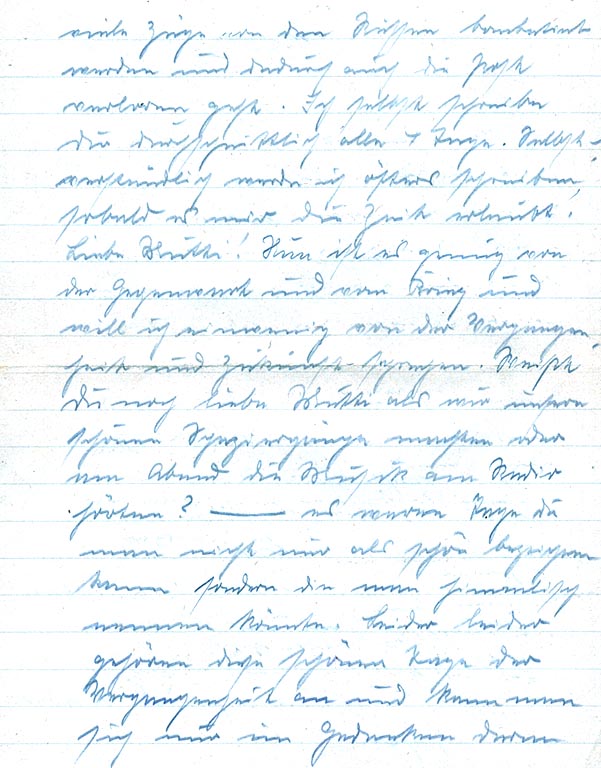 viele Züge von den Russen bombardiert
werden und dadurch auch die Post
verloren geht. Ich selbst schreibe
dir durchschnittlich alle 4 Tage. Selbst-
verständlich werde ich öfters schreiben,
sobald es mir die Zeit erlaubt!
Liebe Mutti! Nun ist es genug von
der Gegenwart und vom Krieg und
will ich einwenig von der Vergangen-
heit und Zukunft sprechen. Weißt
du noch liebe Mutti als wir unsere
schönen Spaziergänge machten oder
am Abend die Musik am Radio
hörten? — es waren Tage die
man nicht nur als schön bezeichnen
kann sondern die man himmlisch
nennen könnte. Leider leider
gehören diese schönen Tage der
Vergangenheit an und kann man
sich nur im Gedanken daran